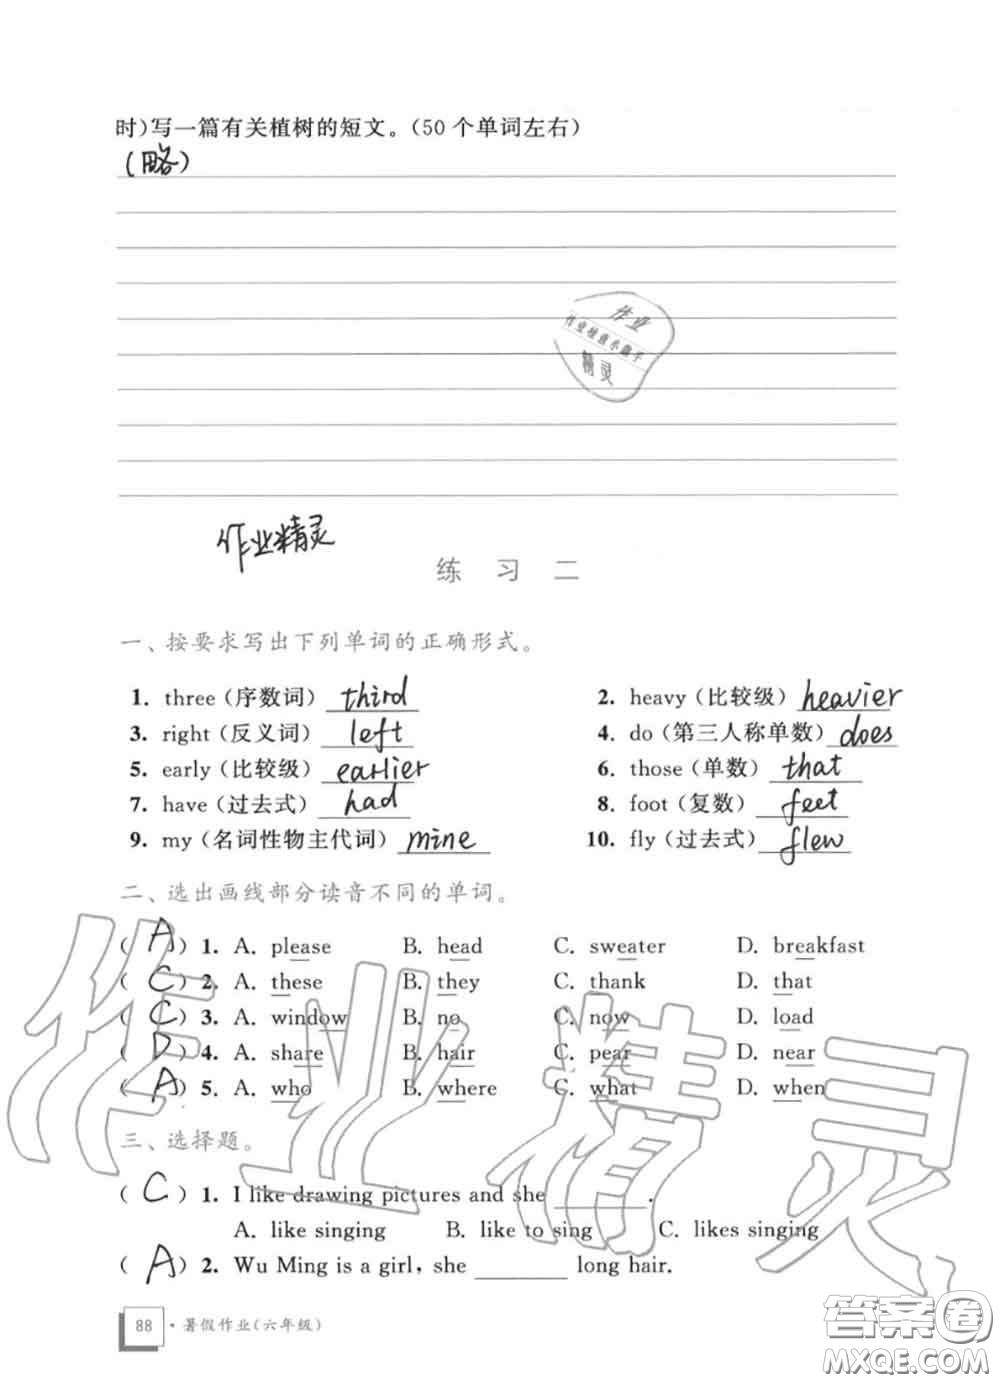 时)写一篇有关植树的短文。(50 个单词左右)
(略)
作业
作业检查小助手
精灵
作业精灵
练 习 二
一、按要求写出下列单词的正确形式。
1. three (序数词) third 2. heavy (比较级) heavier
3. right (反义词) left 4. do (第三人称单数) does
5. early (比较级) earlier 6. those (单数) that
7. have (过去式) had 8. foot (复数) feet
9. my (名词性物主代词) mine 10. fly (过去式) flew
二、选出画线部分读音不同的单词。
( A ) 1. A. please B. head C. sweater D. breakfast
( C ) 2. A. these B. they C. thank D. that
( C ) 3. A. window B. no C. now D. load
( D ) 4. A. share B. hair C. pear D. near
( A ) 5. A. who B. where C. what D. when
作业精灵
三、选择题。
( C ) 1. I like drawing pictures and she ________.
A. like singing B. like to sing C. likes singing
( A ) 2. Wu Ming is a girl, she ________ long hair.
88 · 暑假作业(六年级)
答案圈
MXQE.COM